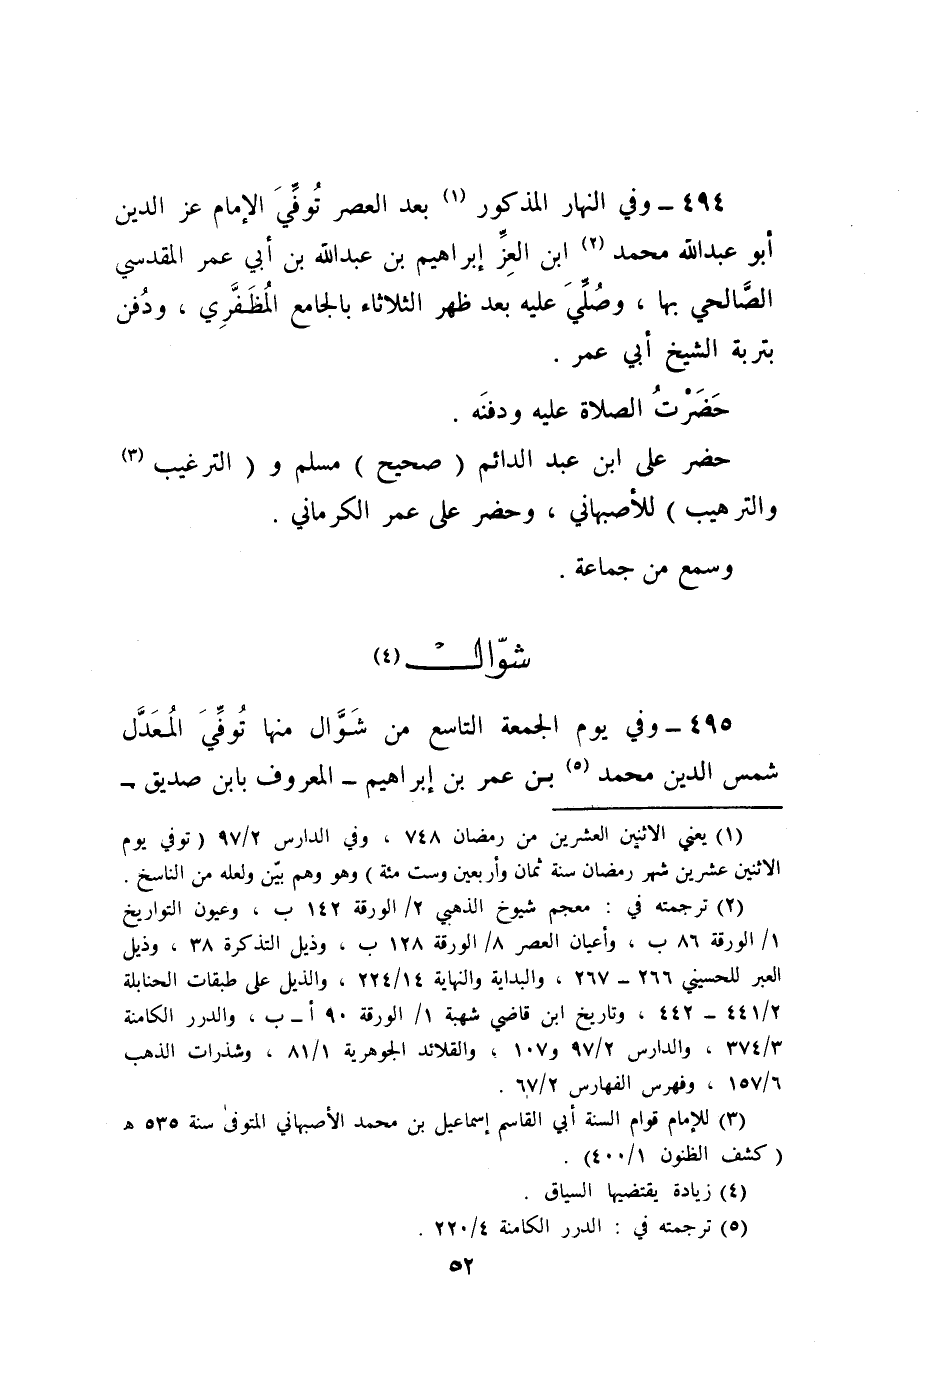 ٤٩٤ ـ وفي النهار المذكور (١) بعد العصر تُوفِّيَ الإمام عز الدين
أبو عبدالله محمد (٢) ابن العِزِّ إبراهيم بن عبدالله بن أبي عمر المقدسي
الصَّالحي بها ، وصُلِّيَ عليه بعد ظهر الثلاثاء بالجامع المُظَفَّرِي ، ودُفن
بتربة الشيخ أبي عمر .
حَضَرْتُ الصلاة عليه ودفنَه .
حضر على ابن عبد الدائم ( صحيح ) مسلم و ( الترغيب (٣)
والترهيب ) للأصبهاني ، وحضر على عمر الكرماني .
وسمع من جماعة .
شوّال (٤)
٤٩٥ ـ وفي يوم الجمعة التاسع من شَوَّال منها تُوفِّيَ المُعَدَّل
شمس الدين محمد (٥) بن عمر بن إبراهيم ـ المعروف بابن صديق ـ
(١) يعني الاثنين العشرين من رمضان ٧٤٨ ، وفي الدارس ٩٧/٢ ( توفي يوم
الاثنين عشرين شهر رمضان سنة ثمان وأربعين وست مئة ) وهو وهم بيّن ولعله من الناسخ .
(٢) ترجمته في : معجم شيوخ الذهبي ٢/ الورقة ١٤٢ ب ، وعيون التواريخ
١/ الورقة ٨٦ ب ، وأعيان العصر ٨/ الورقة ١٢٨ ب ، وذيل التذكرة ٣٨ ، وذيل
العبر للحسيني ٢٦٦ ـ ٢٦٧ ، والبداية والنهاية ٢٢٤/١٤ ، والذيل على طبقات الحنابلة
٤٤١/٢ ـ ٤٤٢ ، وتاريخ ابن قاضي شهبة ١/ الورقة ٩٠ أ ـ ب ، والدرر الكامنة
٣٧٤/٣ ، والدارس ٩٧/٢ و١٠٧ ، والقلائد الجوهرية ٨١/١ ، وشذرات الذهب
١٥٧/٦ ، وفهرس الفهارس ٦٧/٢ .
(٣) للإمام قوام السنة أبي القاسم إسماعيل بن محمد الأصبهاني المتوفى سنة ٥٣٥ ه
( كشف الظنون ٤٠٠/١) .
(٤) زيادة يقتضيها السياق .
(٥) ترجمته في : الدرر الكامنة ٢٢٠/٤ .
٥٢